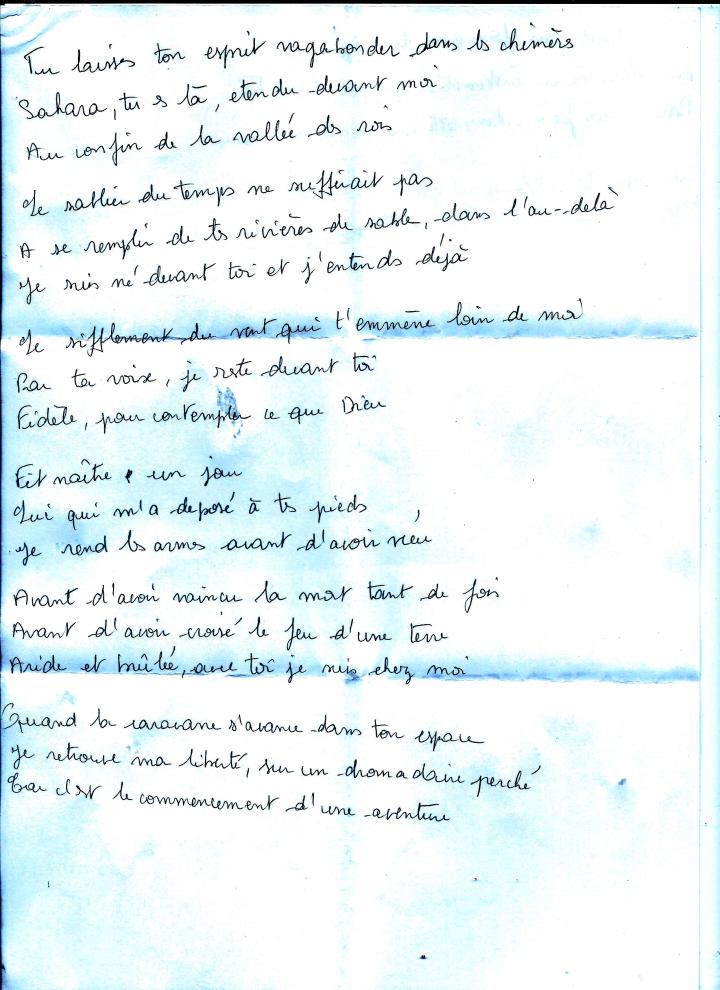 Tu laisses ton esprit vagabonder dans les chimères
Sahara, tu es là, etendu devant moi
Au confin de la vallée des rois
Le sablier du temps ne suffirait pas
A se remplir de tes rivières de sable, dans l'au-delà
Je suis né devant toi et j'entends déjà
Le sifflement du vent qui t'emmène loin de moi
Par ta voix, je reste devant toi
Fidèle, pour contempler ce que Dieu
Fit naître un jour
Lui qui m'a deposé à tes pieds
Je rend les armes avant d'avoir vécu
Avant d'avoir vaincu la mort tant de fois
Avant d'avoir croisé le feu d'une terre
Aride et brûlée, avec toi je suis chez moi
Quand la caravane s'avance dans ton espace
Je retrouve ma liberté, sur un dromadaire perché
Car c'est le commencement d'une aventure